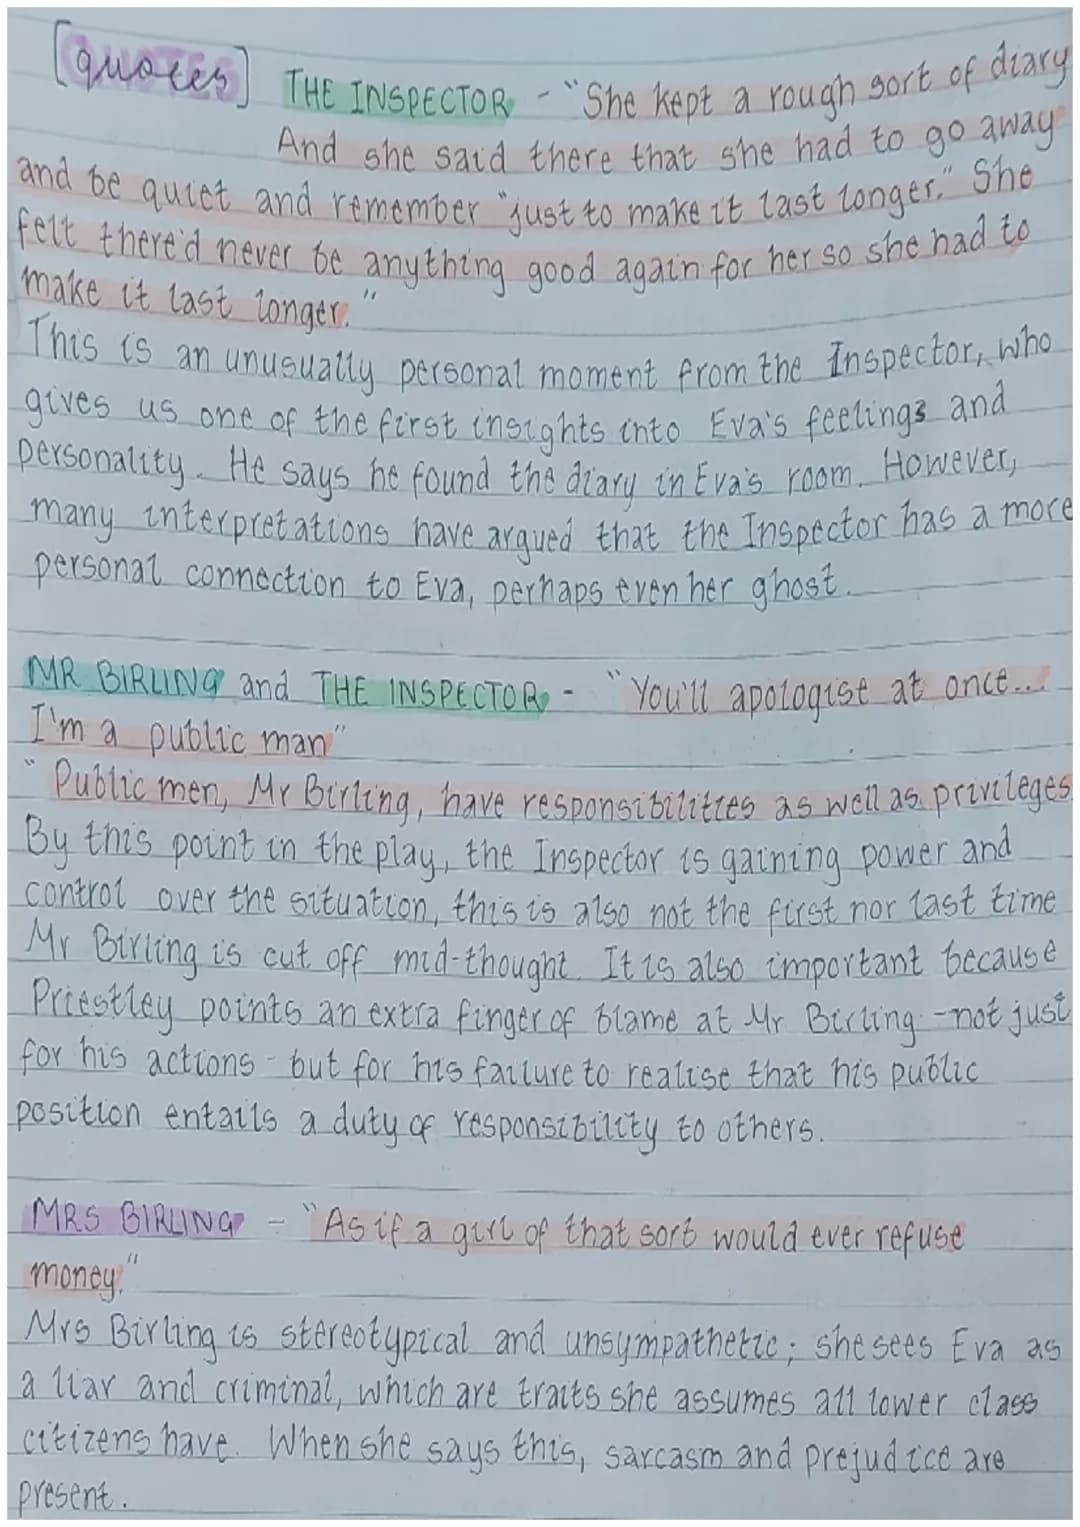 [quotes] THE INSPECTOR - "She kept a rough sort of diary
And she said there that she had to go away
and be quiet and remember "just to make it last longer." She
felt there'd never be anything good again for her so she had to
make it last longer."
This is an unusually personal moment from the Inspector, who
gives us one of the first insights into Eva's feelings and
personality. He says he found the diary in Eva's room. However,
many interpretations have argued that the Inspector has a more
personal connection to Eva, perhaps even her ghost.
MR BIRLING and THE INSPECTOR - "You'll apologise at once...
I'm a public man"
"Public men, Mr Birling, have responsibilities as well as privileges.
By this point in the play, the Inspector is gaining power and
control over the situation, this is also not the first nor last time
Mr Birling is cut off mid-thought. It is also important because
Priestley points an extra finger of blame at Mr Birling - not just
for his actions - but for his failure to realise that his public
position entails a duty of responsibility to others.
MRS BIRLING - "As if a girl of that sort would ever refuse
money."
Mrs Birling is stereotypical and unsympathetic; she sees Eva as
a liar and criminal, which are traits she assumes all lower class
citizens have. When she says this, sarcasm and prejudice are
present.